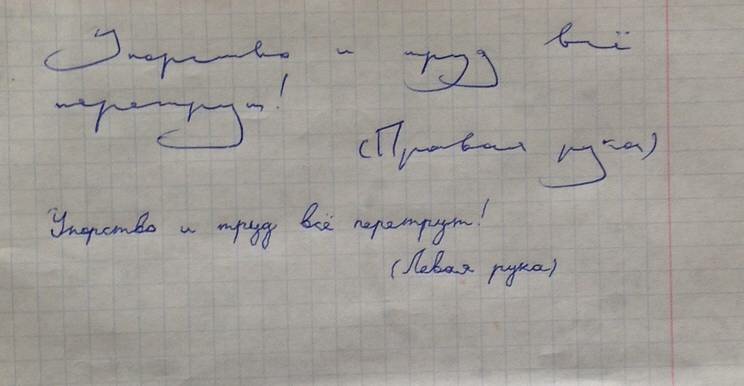 Упорство и труд всё
перетрут!
(Правая рука)
Упорство и труд всё перетрут!
(Левая рука)